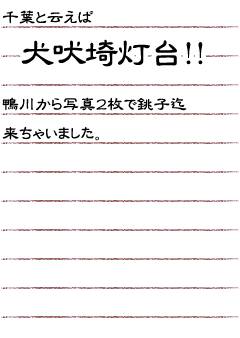 千葉と云えば
犬吠埼灯台!!
鴨川から写真2枚で銚子迄
来ちゃいました。